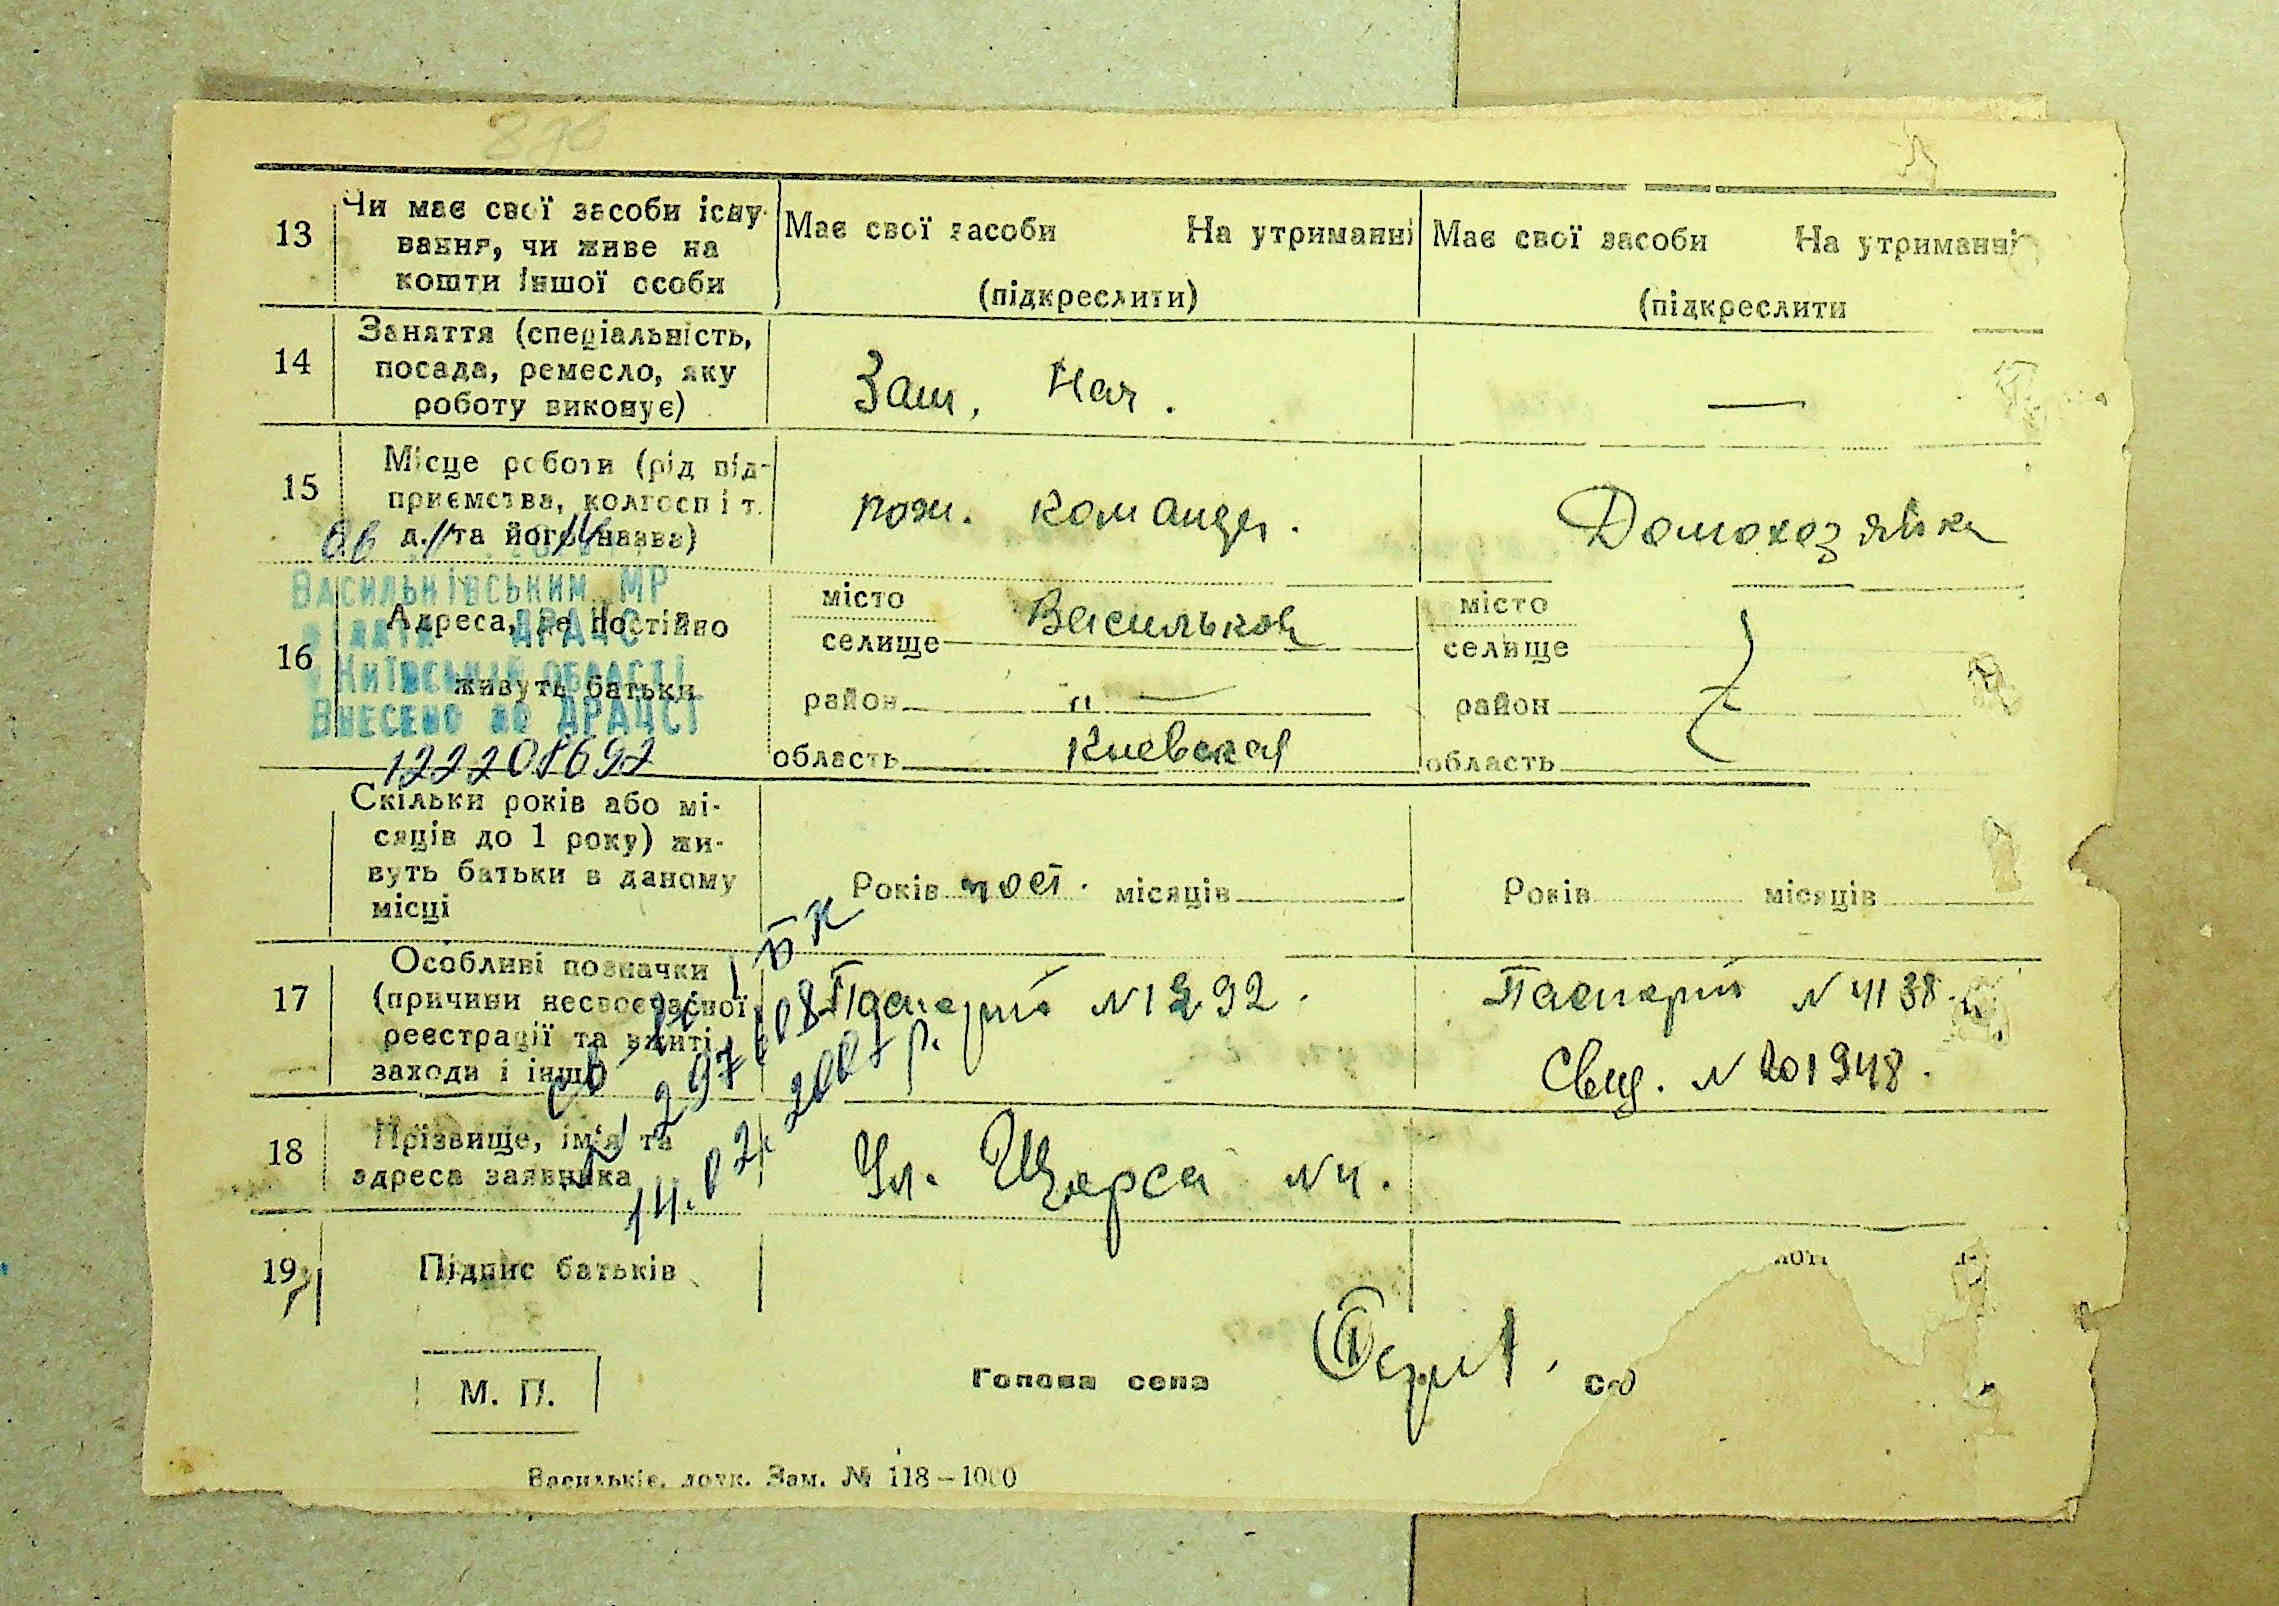 13
Чи має свої засоби існу-
вання, чи живе на
кошти іншої особи
Має свої засоби На утриманні
(підкреслити)
Має свої засоби На утриманні
(підкреслити
14
Заняття (спеціальність,
посада, ремесло, яку
роботу виконує)
Зам. Нач.
—
15
Місце роботи (рід під-
приємства, колгосп і т.
д. та його назва)
пож. команды.
Домохозяйка
Васильківським МР
ДРАЦС
Київській області
Внесено до ДРАЦСГ
16
Адреса, де постійно
живуть батьки
місто
селище Васильков
район „ —
область Киевская
місто
селище
район
область
Скільки років або мі-
сяців до 1 року) жи-
вуть батьки в даному
місці
Років пост. місяців
Років місяців
17
Особливі позначки
(причини несвоєчасної
реєстрації та вжиті
заходи і інш.)
Паспорт N 1292.
Паспорт N 4138.
Свид. N 201948.
14.02.2007 р.
18
Прізвище, ім'я та
адреса заявника
Ул. Щорса N 4.
19
Підпис батьків
М. П.
Голова села
Васильків. друк. Зам. № 118–1000